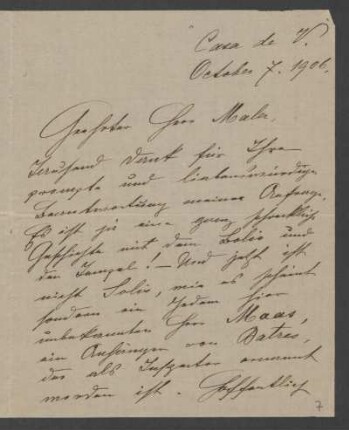 Casa de V.
October 7. 1906.
Geehrter Herr Maler,
Tausend Dank für Ihre
prompte und liebenswürdige
Beantwortung meiner Anfrage.
Es ist ja eine ganz schreckliche
Geschichte mit dem Solis und
den Tempel! – Und jetzt ist
nicht Solis, wie es scheint
sondern ein Jedem hier
unbekannter Herr Maas,
ein Anhänger von Batres,
der als Inspector ernannt
worden ist. Hoffentlich
7